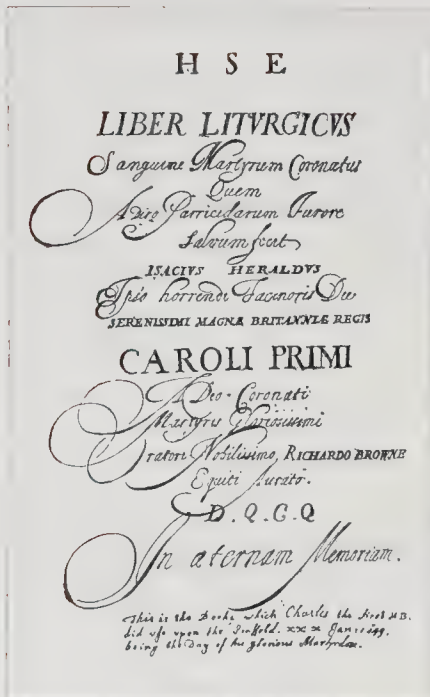 H S E
LIBER LITVRGICVS
Sanguine Martyrum Coronatus
Quem
A diro Parricidarum Furore
Salvum fecit
ISACIVS HERALDVS
Ipso horrendi Facinoris Die
SERENISSIMI MAGNÆ BRITANNIÆ REGIS
CAROLI PRIMI
A Deo-Coronati
Martyris Gloriosissimi
Oratori Nobilissimo, RICHARDO BROWNE
Equiti Aurato.
D. Q. C. Q
In aternam Memoriam.
This is the Booke which Charles the first M B.
did use upon the Scaffold. xxx Jan: 1649.
being the Day of his glorious Martyrdom.